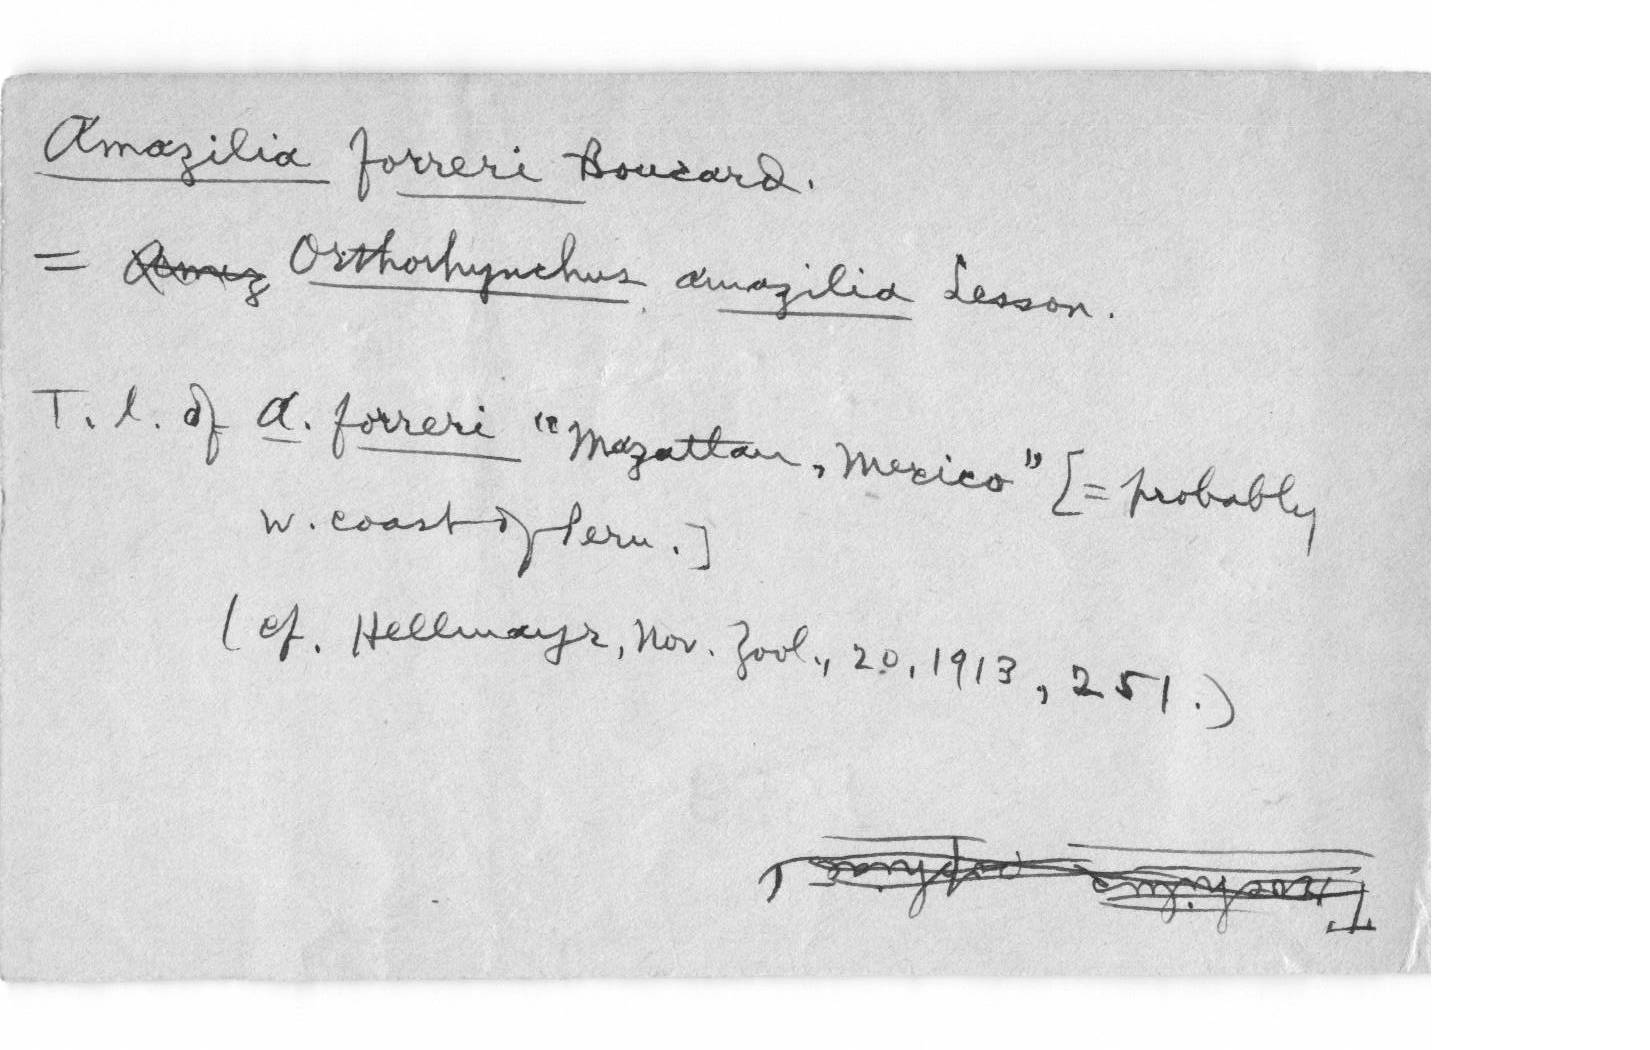 Amazilia forreri Boucard.
= Amaz Orthorhynchus amazilia Lesson.
T. l. of A. forreri "Mazatlan, Mexico" [= probably
w. coast of Peru.]
(cf. Hellmayr, Nov. Zool., 20, 1913, 251.)